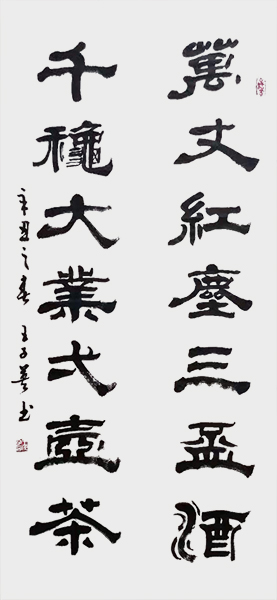 萬丈紅塵三盃酒
千穐大業弌壺茶
辛丑之春王子善书